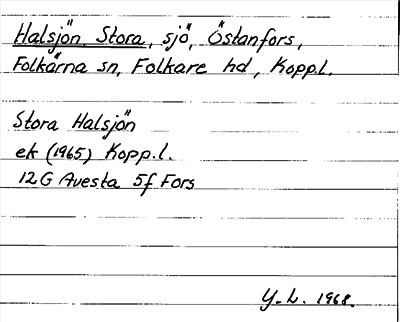 Halsjön, Stora, sjö, Östanfors,
Folkärna sn, Folkare hd, Kopp.l.
Stora Halsjön
ek (1965) Kopp.l.
12G Avesta 5f Fors
Y-L. 1968.